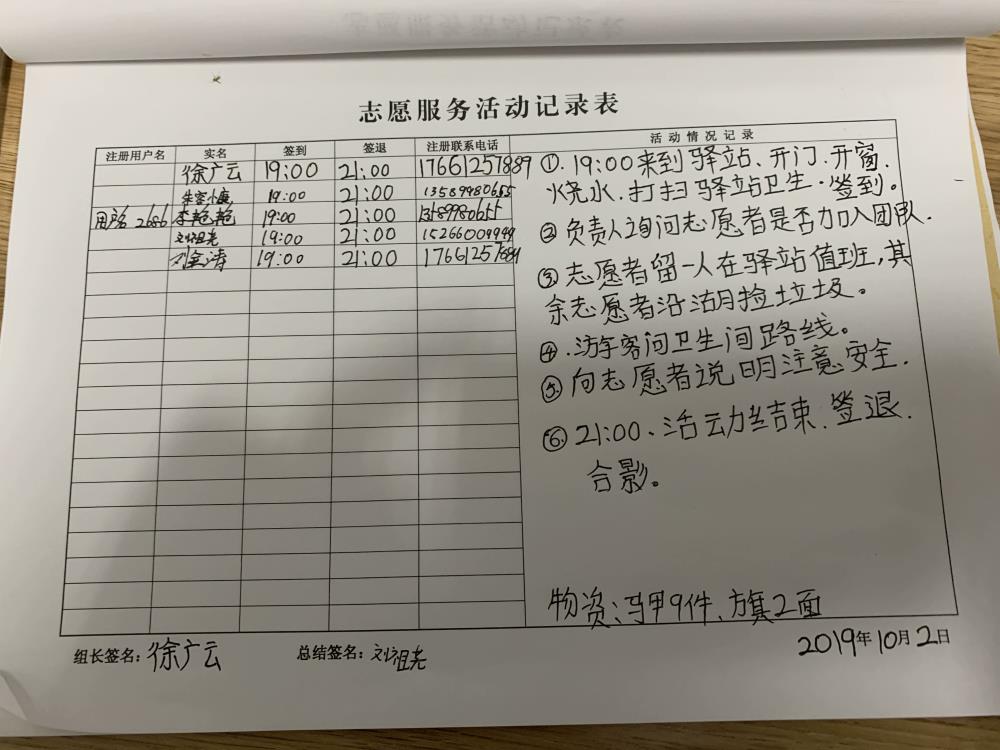 志愿服务活动记录表
注册用户名 实名 签到 签退 注册联系电话 活动情况记录
徐广云 19:00 21:00 17661257889
19:00 21:00 13589980655
用户名 2686 李艳艳 19:00 21:00 13589980655
刘祖尧 19:00 21:00 15266009949
19:00 21:00 17661257889
①.19:00来到驿站、开门.开窗.
烧水.打扫驿站卫生.签到。
②负责人询问志愿者是否加入团队.
③志愿者留一人在驿站值班,其
余志愿者沿湖捡垃圾。
④.游客问卫生间路线。
⑤向志愿者说明注意安全.
⑥21:00、活动结束.签退.
合影。
物资:马甲9件、旗2面
组长签名:徐广云 总结签名:刘祖尧
2019年10月2日